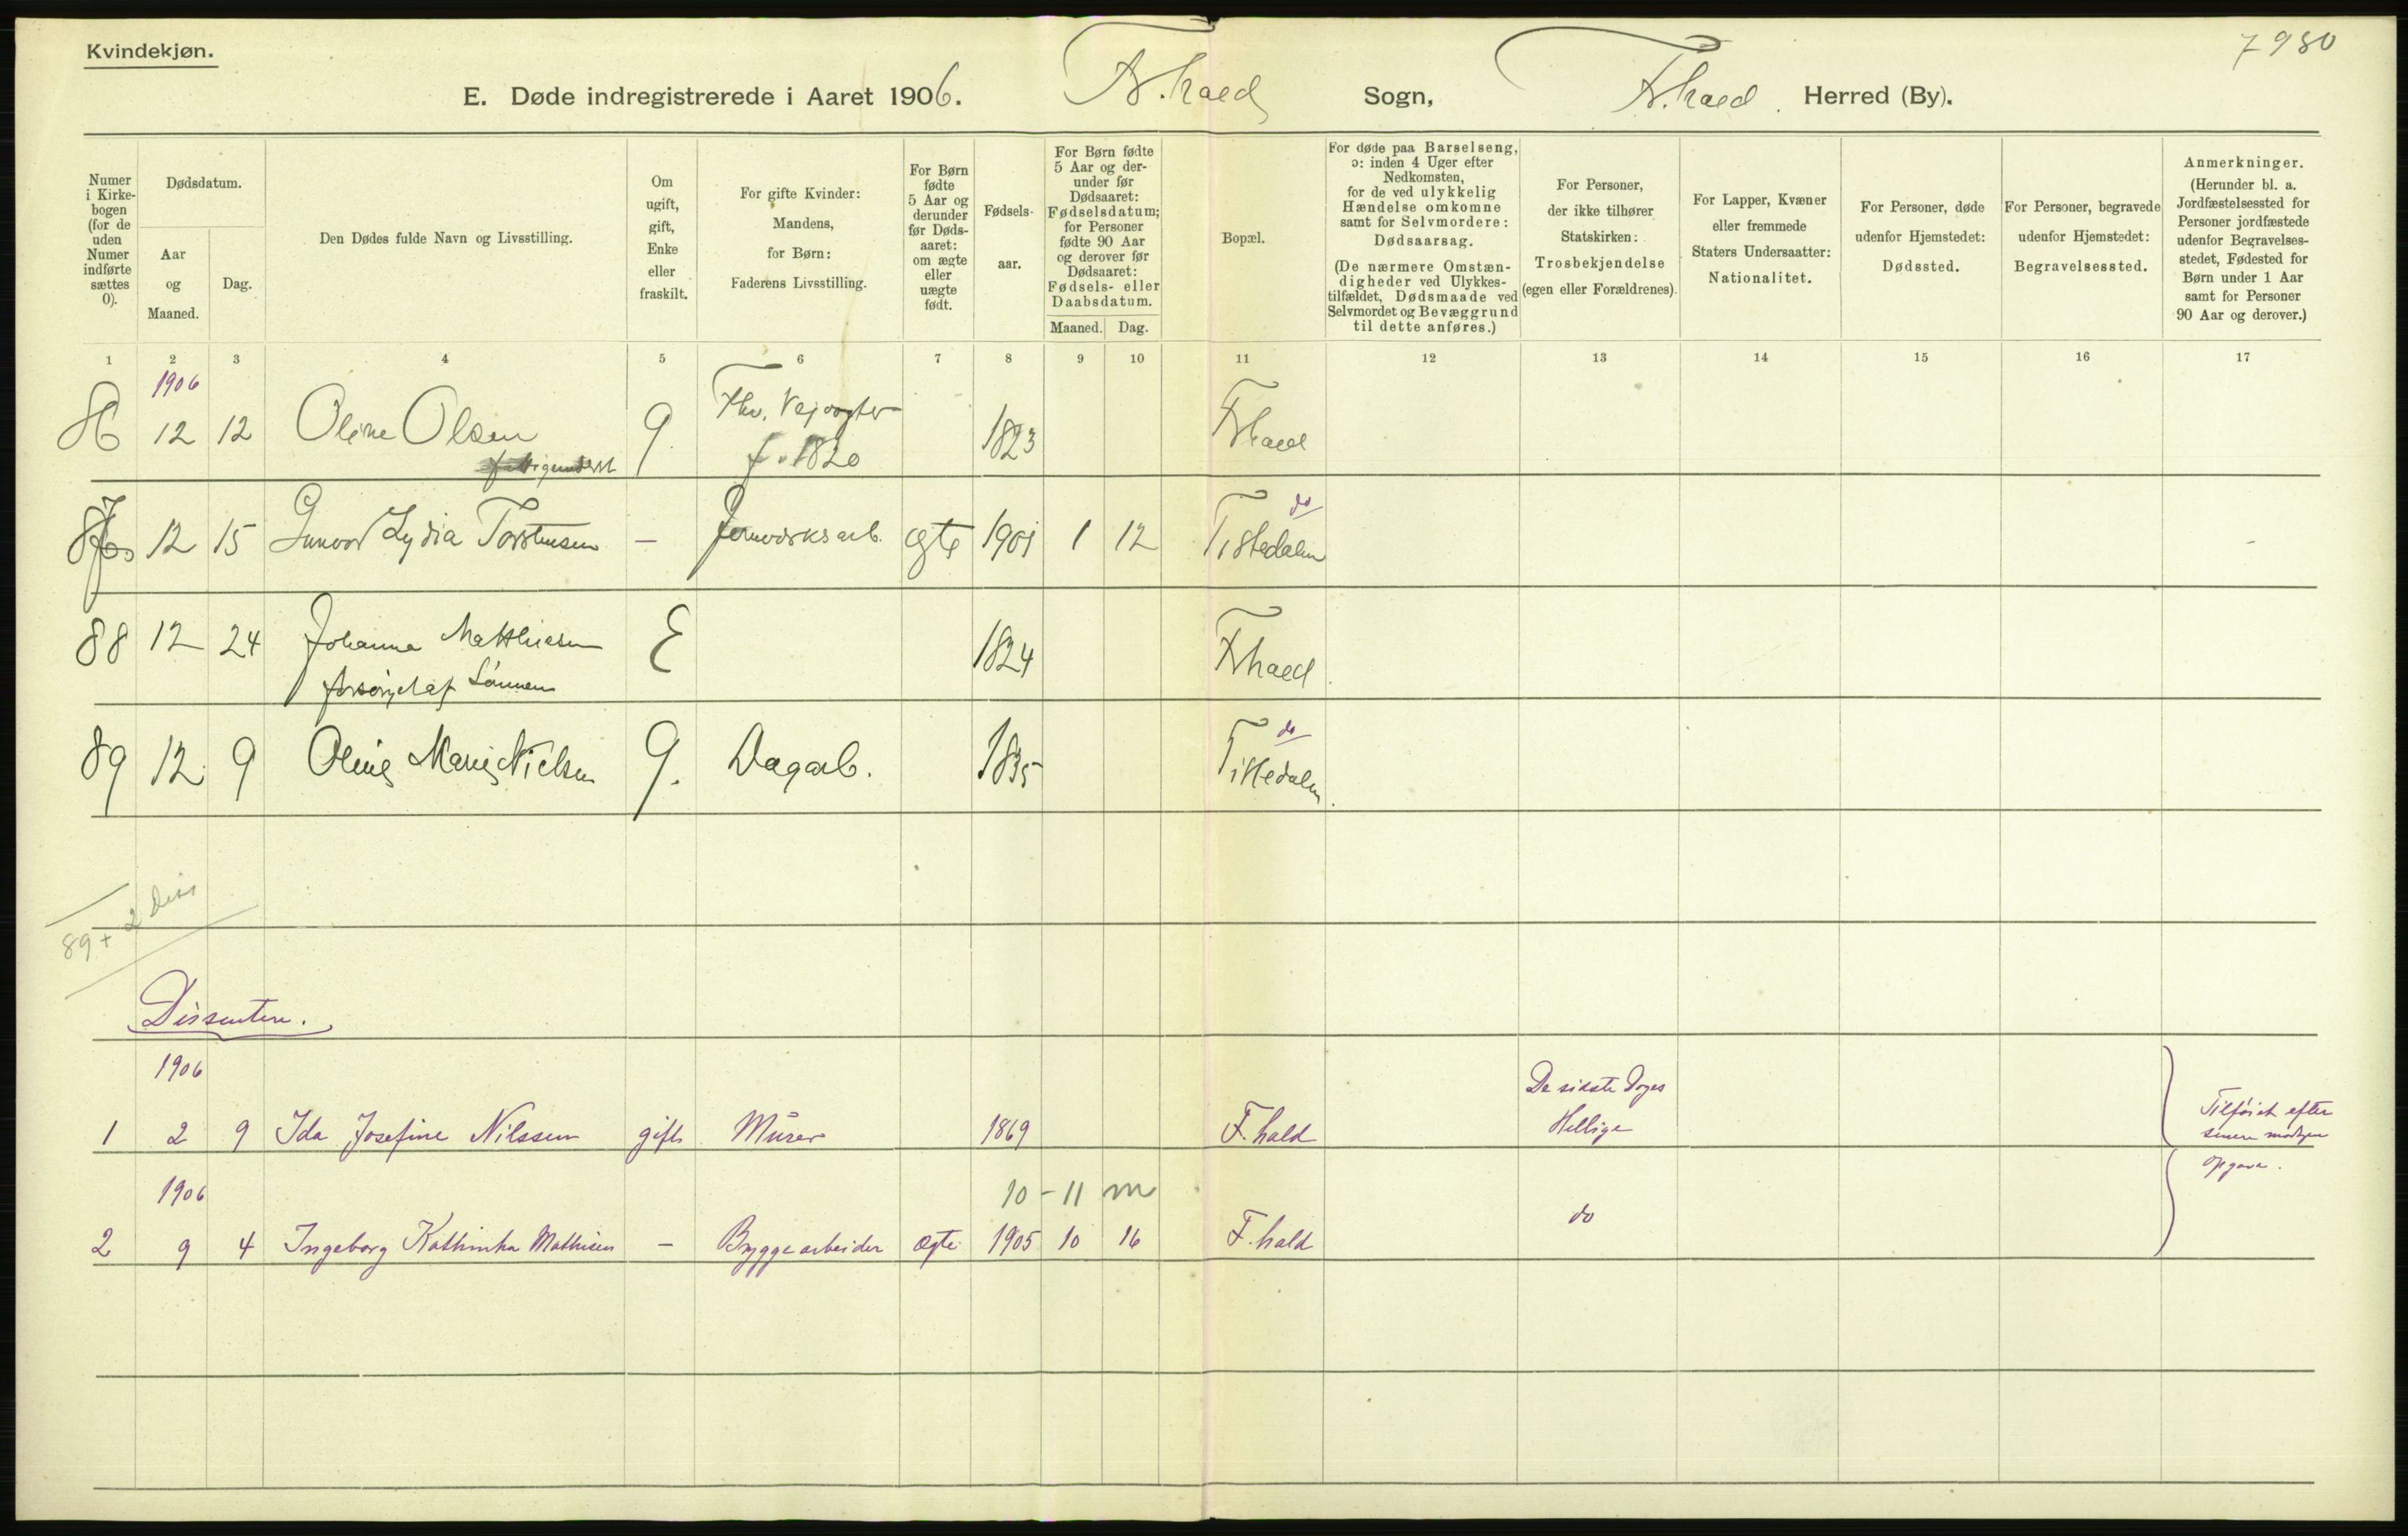 Kvindekjøn.
7980
E. Døde indregistrerede i Aaret 1906. Fr.hald Sogn, Fr.hald. Herred (By).
Numer i Kirkebogen (for de uden Numer indførte sættes 0).
Dødsdatum.
Aar og Maaned.
Dag.
Den Dødes fulde Navn og Livsstilling.
Om ugift, gift, Enke eller fraskilt.
For gifte Kvinder: Mandens, for Børn: Faderens Livsstilling.
For Børn fødte 5 Aar og derunder før Dødsaaret: om ægte eller uægte født.
Fødselsaar.
For Børn fødte 5 Aar og derunder før Dødsaaret: Fødselsdatum; for Personer fødte 90 Aar og derover før Dødsaaret: Fødsels- eller Daabsdatum.
Maaned. Dag.
Bopæl.
For døde paa Barselseng, ɔ: inden 4 Uger efter Nedkomsten, for de ved ulykkelig Hændelse omkomne samt for Selvmordere: Dødsaarsag. (De nærmere Omstændigheder ved Ulykkestilfældet, Dødsmaade ved Selvmordet og Bevæggrund til dette anføres.)
For Personer, der ikke tilhører Statskirken: Trosbekjendelse (egen eller Forældrenes).
For Lapper, Kvæner eller fremmede Staters Undersaatter: Nationalitet.
For Personer, døde udenfor Hjemstedet: Dødssted.
For Personer, begravede udenfor Hjemstedet: Begravelsessted.
Anmerkninger. (Herunder bl. a. Jordfæstelsessted for Personer jordfæstede udenfor Begravelsesstedet, Fødested for Børn under 1 Aar samt for Personer 90 Aar og derover.)
1 2 3 4 5 6 7 8 9 10 11 12 13 14 15 16 17
1906
86 12 12 Oline Olsen G. Fhv. Vejvogter 1823 Frhald
f. 1820
do
87 12 15 Gunvor Lydia Torstensen - Jernværksarb. ægte 1901 1 12 Tistedalen
88 12 24 Johanna Matthiesen E 1824 Frhald.
forsørget af Sønnen
do
89 12 9 Oline Marie Nielsen G. Dagarb. 1835 Tistedalen.
89 + 2 Diss
Dissentere.
1906 De sidste Dages
1 2 9 Ida Josefine Nilssen gift Murer 1869 F.hald Hellige Tilføiet efter
senere modtagen
1906 10 - 11 m opgave.
2 9 4 Ingeborg Kathinka Mathisen - Bryggearbeider ægte 1905 10 16 F.hald do